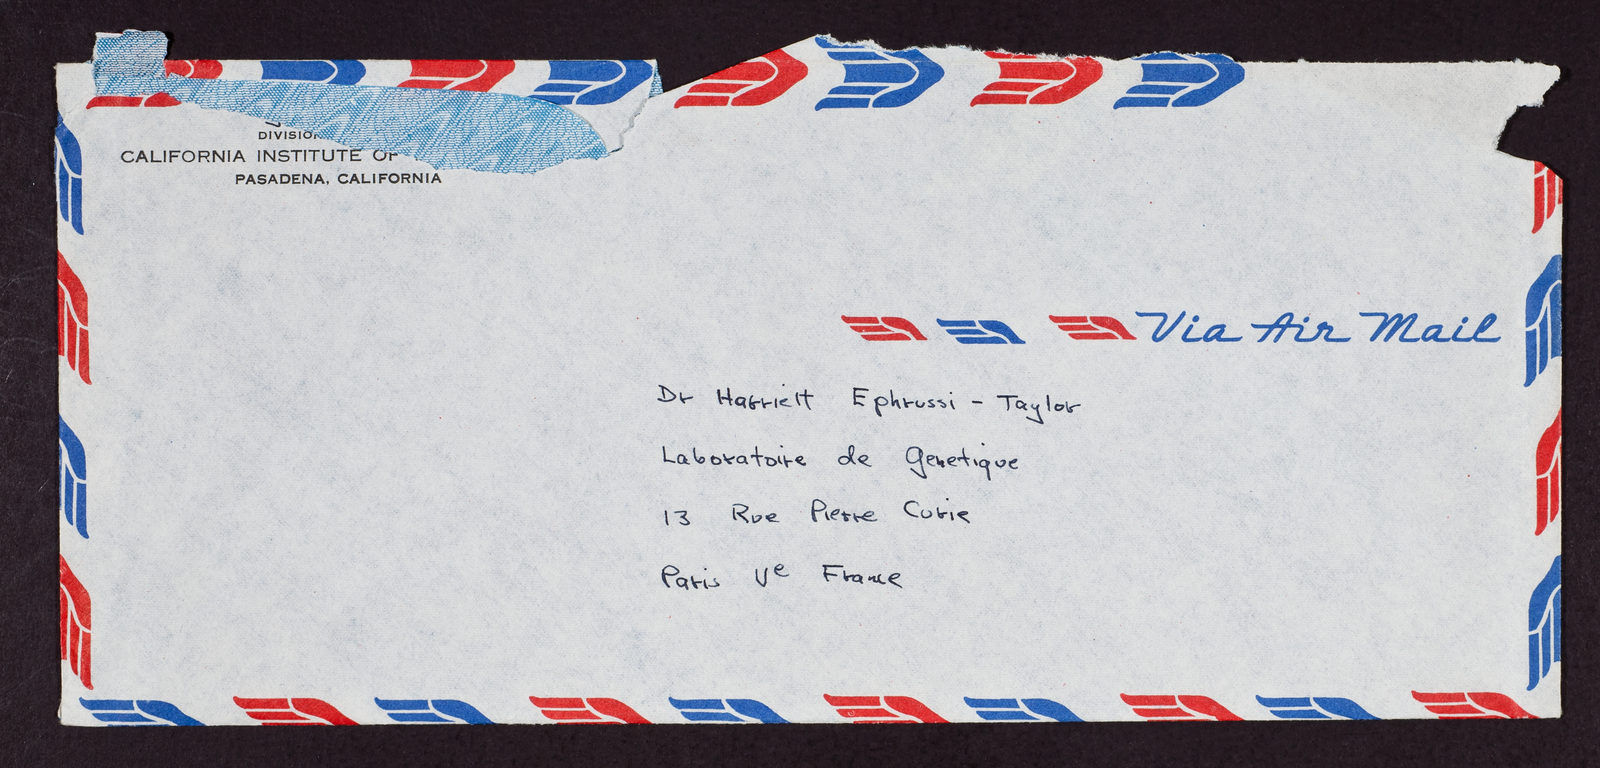 DIVISION
CALIFORNIA INSTITUTE OF
PASADENA, CALIFORNIA
Via Air Mail
Dr Harriett Ephrussi - Taylor
Laboratoire de Genetique
13 Rue Pierre Curie
Paris Ve France